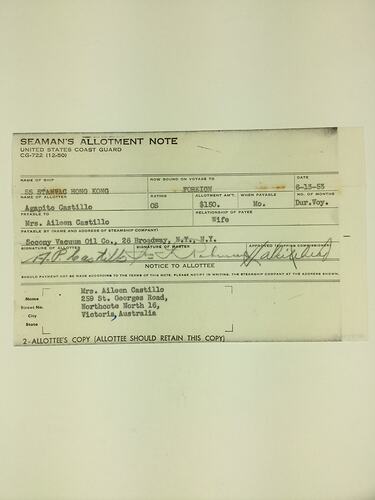 SEAMAN'S ALLOTMENT NOTE
UNITED STATES COAST GUARD
CG-722 (12-50)
NAME OF SHIP NOW BOUND ON VOYAGE TO DATE
SS STANVAC HONG KONG FOREIGN 6-13-53
NAME OF ALLOTTER RATING ALLOTMENT AM'T. WHEN PAYABLE NO. OF MONTHS
Agapito Castillo OS $150. Mo. Dur.Voy.
PAYABLE TO RELATIONSHIP OF PAYEE
Mrs. Aileen Castillo Wife
PAYABLE BY (NAME AND ADDRESS OF STEAMSHIP COMPANY)
Socony Vacuum Oil Co., 26 Broadway, N.Y., N.Y.
SIGNATURE OF ALLOTTER SIGNATURE OF MASTER APPROVED (SHIPPING COMMISSIONER)
A.P. Castillo
NOTICE TO ALLOTTEE
SHOULD PAYMENT NOT BE MADE ACCORDING TO THE TERMS OF THIS NOTE, PLEASE NOTIFY, IN WRITING, THE STEAMSHIP COMPANY AT THE ADDRESS SHOWN.
Name Mrs. Aileen Castillo
Street No. 259 St. Georges Road,
City Northcote North 16,
State Victoria, Australia
2-ALLOTTEE'S COPY (ALLOTTEE SHOULD RETAIN THIS COPY)